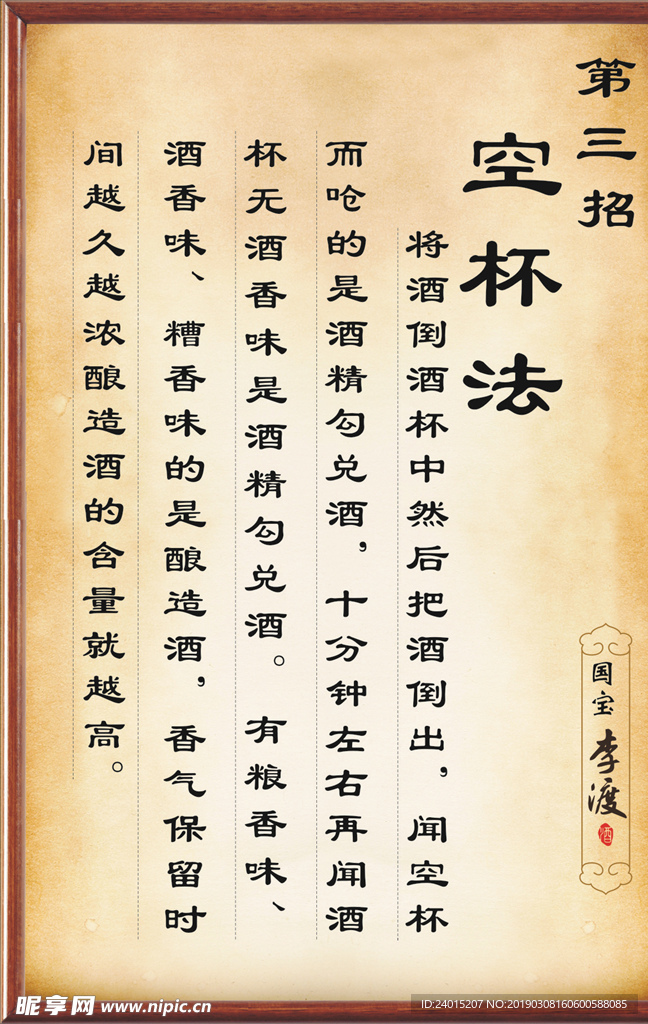 第三招
空杯法
将酒倒酒杯中然后把酒倒出，闻空杯
而呛的是酒精勾兑酒，十分钟左右再闻酒
杯无酒香味是酒精勾兑酒。有粮香味、
酒香味、糟香味的是酿造酒，香气保留时
间越久越浓酿造酒的含量就越高。
国宝李渡
酒
昵享网 www.nipic.cn
ID:24015207 NO:20190308160600588085